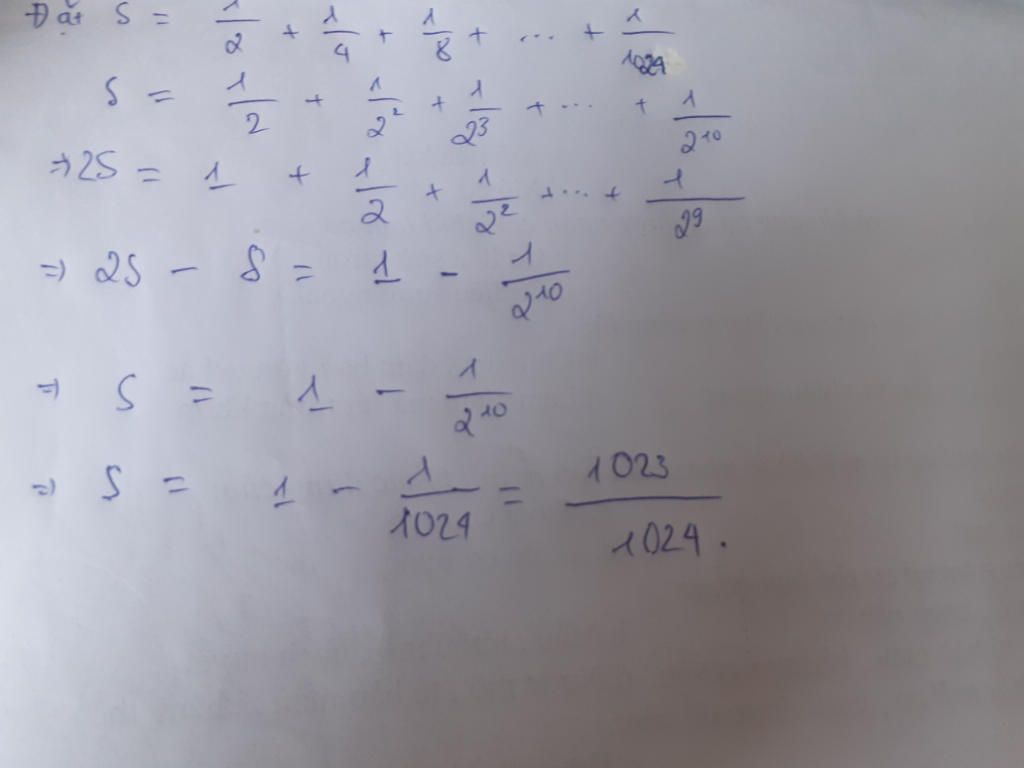 Đặt S = 1/2 + 1/4 + 1/8 + ... + 1/1024
S = 1/2 + 1/2² + 1/2³ + ... + 1/2¹⁰
⇒ 2S = 1 + 1/2 + 1/2² + ... + 1/2⁹
⇒ 2S - S = 1 - 1/2¹⁰
⇒ S = 1 - 1/2¹⁰
⇒ S = 1 - 1/1024 = 1023/1024.